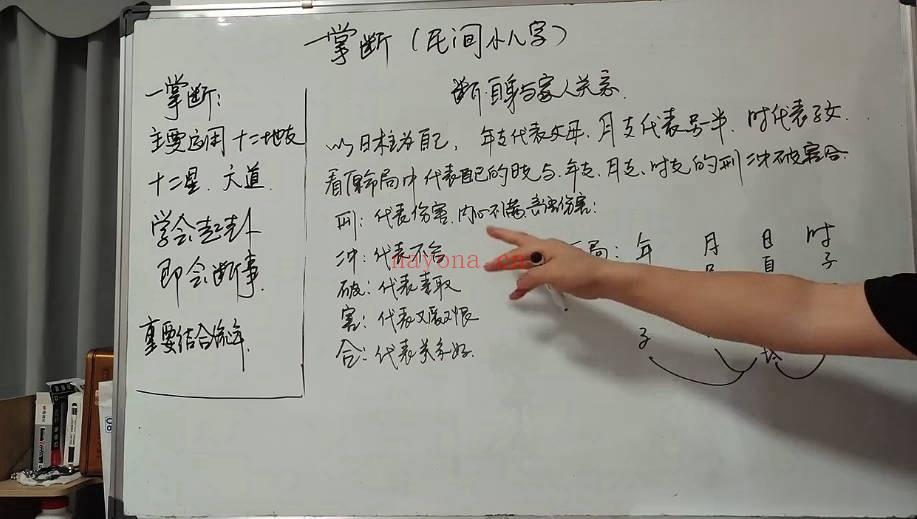 一掌断（民间小八字）
一掌断：
主要应用十二地支
十二星、六道
学会起卦
即会断事
重要结合流年
断自身与家人关系
以日柱为自己，年支代表父母，月支代表另一半，时代表子女
看原命局中代表自己的时支与年支、月支、时支的刑冲破害合
刑：代表伤害、内心不满、
冲：代表不合
破：代表
害：代表又爱又恨
合：代表关系好
局：年 月 日 时
子
子
nayona.cn